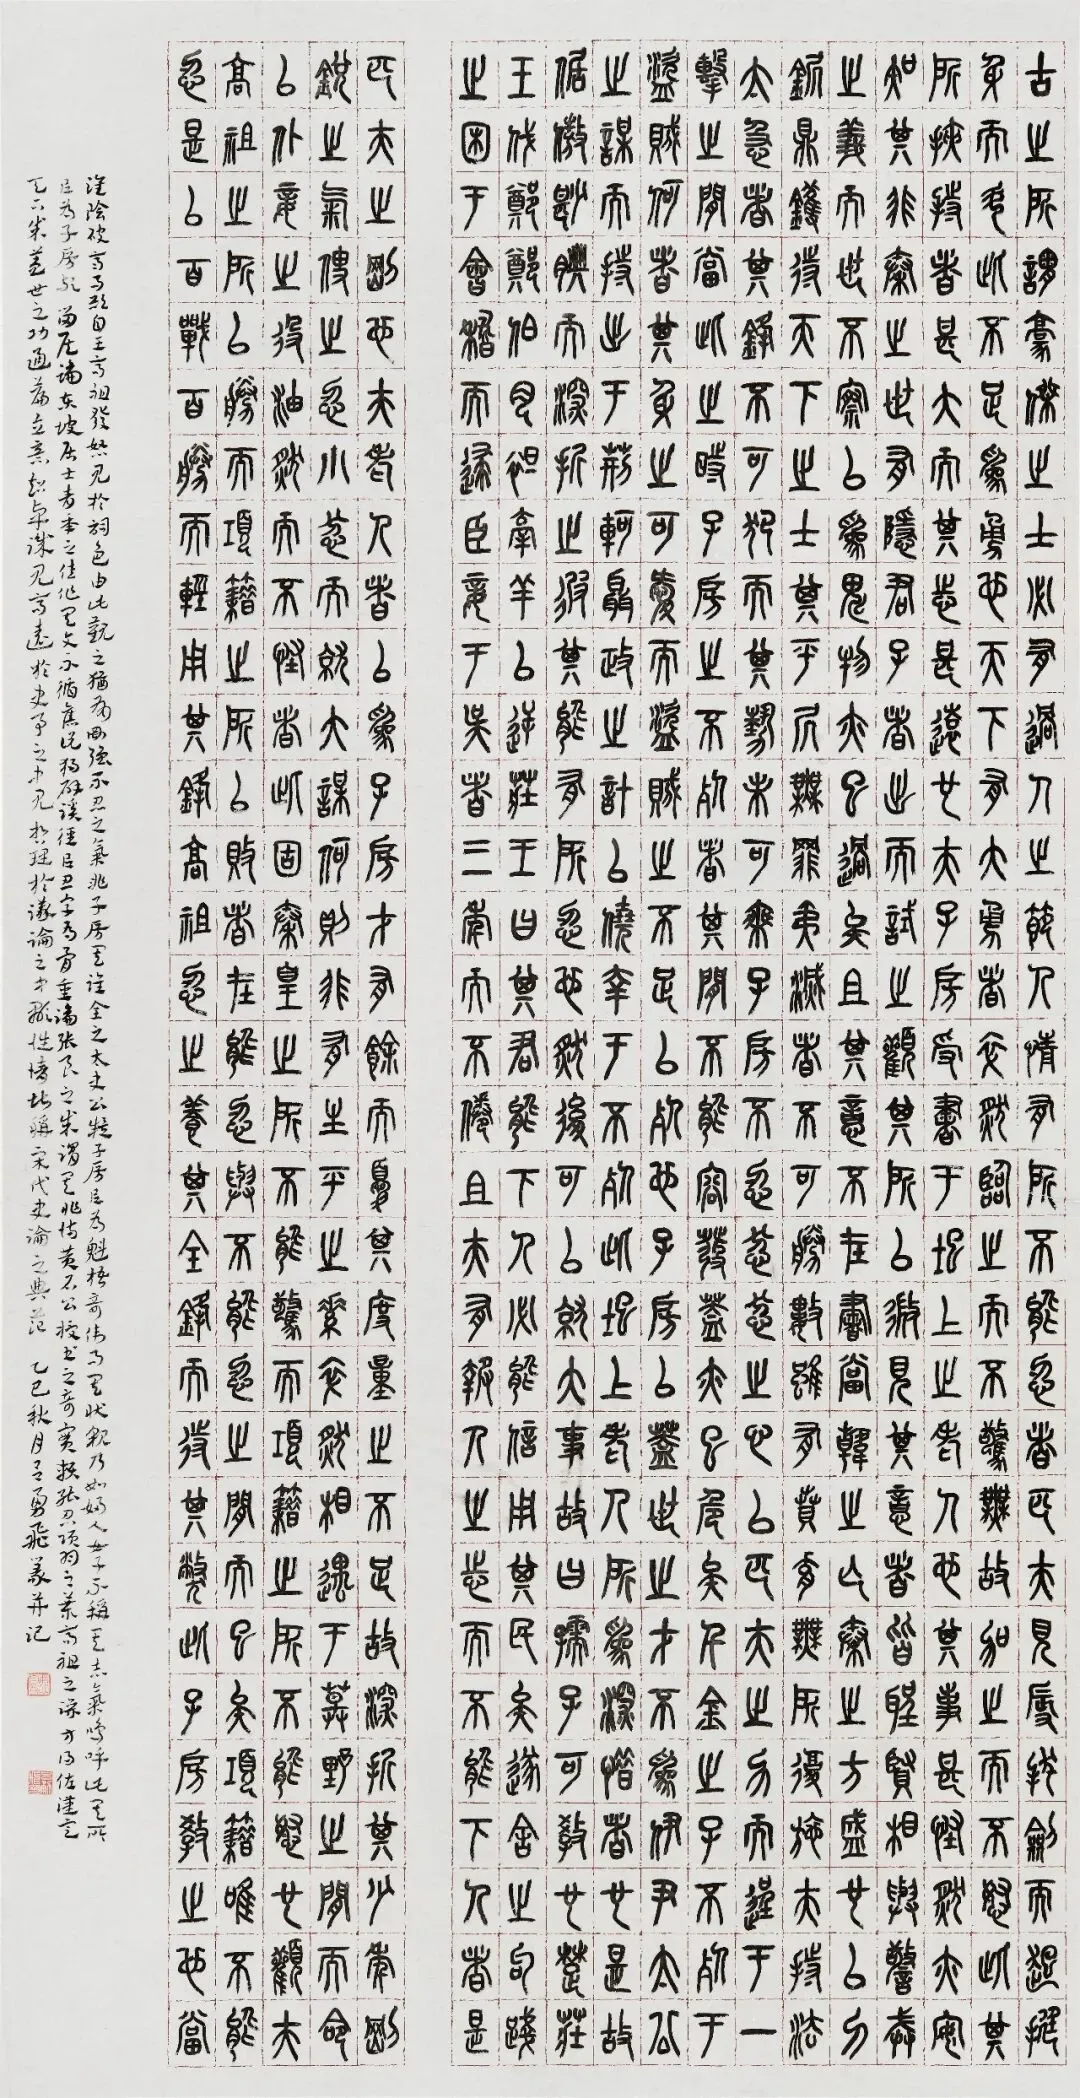 古之所謂豪傑之士必有過人之節人情有所不能忍者匹夫見辱拔劍而起挺
身而鬥此不足為勇也天下有大勇者卒然臨之而不驚無故加之而不怒此其
所挾持者甚大而其志甚遠也夫子房受書于圯上之老人也其事甚怪然亦安
知其非秦之世有隱君子者出而試之觀其所以微見其意者皆聖賢相與警戒
之義而世不察以為鬼物亦已過矣且其意不在書當韓之亡秦之方盛也以刀
鋸鼎鑊待天下之士其平居無罪夷滅者不可勝數雖有賁育無所復施夫持法
太急者其鋒不可犯而其勢未可乘子房不忍忿忿之心以匹夫之力而逞于一
擊之間當此之時子房之不死者其間不能容髮蓋亦已危矣千金之子不死于
盜賊何者其身之可愛而盜賊之不足以死也子房以蓋世之才不為伊尹太公
之謀而特出于荊軻聶政之計以僥幸于不死此圯上老人所為深惜者也是故
倨傲鮮腆而深折之彼其能有所忍也然後可以就大事故曰孺子可教也楚莊
王伐鄭鄭伯肉袒牽羊以逆莊王曰其君能下人必能信用其民矣遂舍之句踐
之困于會稽而歸臣妾于吳者三年而不倦且夫有報人之志而不能下人者是
匹夫之剛也夫老人者以為子房才有餘而憂其度量之不足故深折其少年剛
銳之氣使之忍小忿而就大謀何則非有生平之素卒然相遇于草野之間而命
以仆妾之役油然而不怪者此固秦皇之所不能驚而項籍之所不能怒也觀夫
高祖之所以勝而項籍之所以敗者在能忍與不能忍之間而已矣項籍唯不能
忍是以百戰百勝而輕用其鋒高祖忍之養其全鋒而待其斃此子房教之也當
淮陰破齊而欲自王高祖發怒見於詞色由此觀之猶有剛強不忍之氣非子房其誰全之太史公疑子房以為魁梧奇偉而其狀貌乃如婦人女子不稱其志氣嗚呼此其所
以為子房歟 留侯論東坡居士青春之佳作其文不循舊說獨辟蹊徑以忍字為骨重論張良之成謂其非恃黃石公授書之奇實賴能忍項羽之 高祖之謀方得佐漢定
天下成蓋世之功通篇立意超卓識見高遠於史事之中見哲理於議論之中顯性情堪稱宋代史論之典范 乙巳秋月 勇飛篆并記